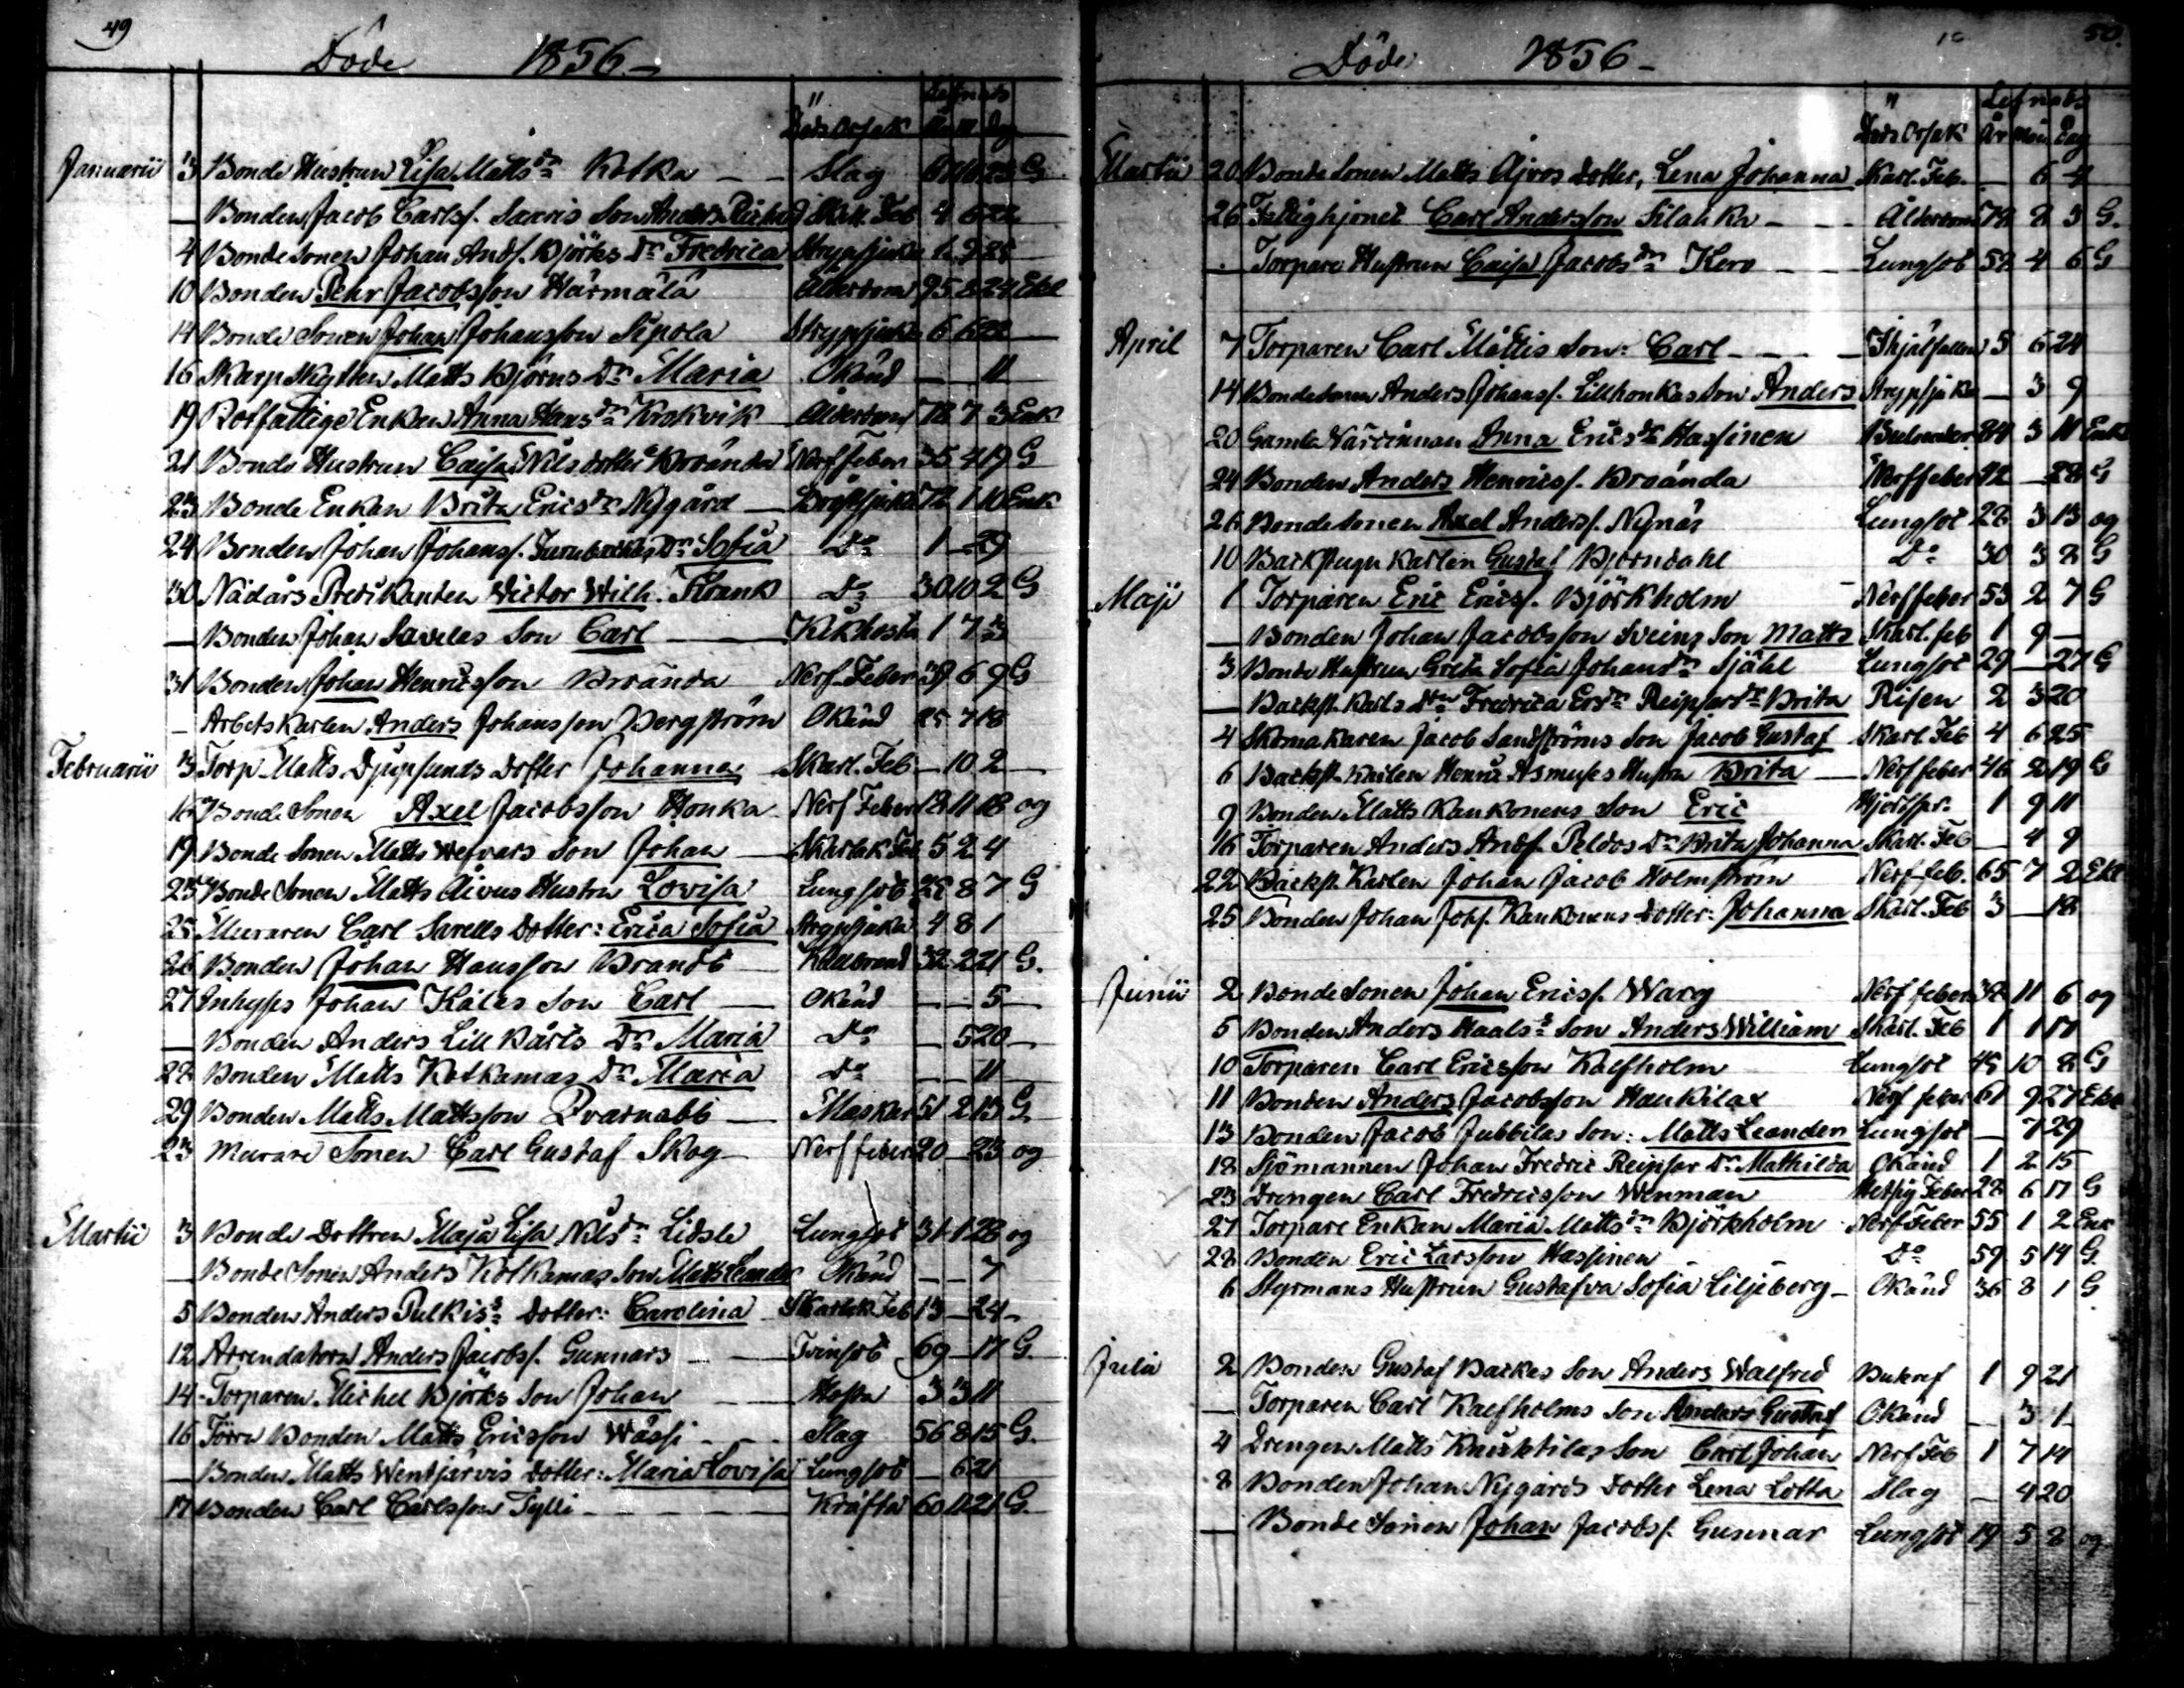 49
Döde 1856.-
Lefnads
Döds Orsak År M Dag
Januarii 3 Bonde Hustrun Lisa Mattsdr Kotka - - Slag 67 10 23 G
— Bonden Jacob Carlss. Saaris Son Anders Richard Skarl. Feb 4 6 22
4 Bondesonen Johan Ands. Björks Dr Fredrica Strypsjuka 1 9 25
10 Bonden Pehr Jacobsson Härmälä Ålderdom 95 8 24 Ekl
14 Bonde Sonen Johan Johansson Sipola Strypsjuka 6 6 22
16 Skarpskytten Matts Björns Dr Maria Okänd — — 11
19 Rotfattige Enkan Anna Hansdr Krokvik Ålderdom 78 7 3 Enk
21 Bonde Hustrun Caisa Nils dotter Brända Nerffeber 35 4 19 G
23 Bonde Enkan Brita Ericsdr Nygård — Bröstsjuka 72 1 10 Enk.
24 Bonden Johan Johanss. Dr Sofia Do 1 — 29
30 Nådårs Predikanten Victor Wilh. Frank Do 30 10 2 G
— Bonden Johan Savelas Son Carl — Kikhosta 1 7 3
31 Bonden Johan Henricsson Brända Nerf-Feber 39 6 9 G
— Arbetskarlen Anders Johansson Bergström Okänd 25 7 18
Februarii 3 Torp. Matts Djupsunds dotter Johanna Skarl. Feb — 10 2 —
16 Bonde Sonen Axel Jacobsson Honka Nerf Feber 18 11 18 og
19 Bonde Sonen Matts Wefvars Son Johan — Skarlak. Feb 5 2 4
25 Bonde Sonen Matts Aivus Hustru Lovisa Lungsot 28 8 7 G
25 Muraren Carl Sarells dotter: Erica Sofia Strypsjuka 4 8 1
26 Bonden Johan Hansson Brandt — Kallbrand 32 2 21 G.
27 Inhyses Johan Kålas Son Carl — Okänd — — 5 —
— Bonden Anders Lill Kårts Dr Maria Do — 5 20 —
28 Bonden Matts Kotkamas Dr Maria Do — — 11
29 Bonden Matts Mattsson Qvarnabb — Maskar 51 2 13 G
23 Murare Sonen Carl Gustaf Skog — Nerf feber 20 — 23 og
Martii 3 Bonde Dottren Maja Lisa Nilsdr Lidsle Lungsot 31 1 28 og
— Bonde Sonen Anders Kotkamas Son Matts Leander Okänd — — 7
5 Bonden Anders Pulkis: dotter: Carolina Skarlak. Feb 13 — 24 -
12 Arrendatorn Anders Jacobs. Gunnars — Tvinsot 69 — 17 G.
14 - Torparen Michel Björks Son Johan — Hosta 3 3 11
16 Förra Bonden Matts Ericsson Wåssi - - Slag 56 8 15 G.
— Bonden Matts Wentjärvis dotter: Maria Lovisa Lungsot — 6 21
17 Bonden Carl Carlsson Tylli - - - Kräfta 60 11 21 G.
50.
Döde 1856 -
Lefnads
Döds Orsak År Mån Dag
Martii 20 Bonde Sonen Matts Ajvos dotter, Lena Johanna Skarl. Feb. — 6 4
26 Fattighjonet Carl Andersson Silahka - - - Ålderdom 78 8 3 G.
— Torpare Hustrun Caisa Jacobsdr Kero — Lungsot 52 4 6 G
April 7 Torparen Carl Måttis Son: Carl - - - Ihjälfallen 5 6 24
14 Bondesonen Anders Johanss. Lillhonkas Son Anders Strypsjuka — 3 9
20 Gamla Värdinnan Anna Ericsdr Hassinen 84 3 11 Enk
24 Bonden Anders Henricss. Brända Nerffeber 42 — 28 G
26 Bonde Sonen Axel Anderss. Nynäs Lungsot 28 3 13 og
10 Backstugu Karlen Gustaf Björndahl Do 30 3 8 G
Maji 1 Torparen Eric Ericss. Björkholm Nerffeber 53 2 7 G
— Bonden Johan Jacobsson Sveins Son Matts Skarl. feb 1 9 —
3 Bonde Hustrun Greta Sofia Johansdr Själil Lungsot 29 — 27 G
— Backst. Karls dr Fredrica Ersdr Reipsar dr Brita Risen 2 3 20
4 Skomakaren Jacob Sandströms Son Jacob Gustaf Skarl. Feb 4 6 25
6 Backst. Karlen Henric Asmuses Hustru Brita — Nerffeber 46 2 19 G
9 Bonden Matts Kankonens Son Eric Hjertspr. 1 9 11
16 Torparen Anders Ands. Peldos Dr Brita Johanna Skarl. Feb — 4 9
22 Backst. Karlen Johan Jacob Holmström Nerf-feb. 65 7 2 Ekl
25 Bonden Johan Johs. Kankonens dotter: Johanna Skarl. Feb 3 — 18
Junii 2 Bonde Sonen Johan Ericss. Warg Nerf feber 38 11 6 og
5 Bonden Anders Haals: Son Anders William Skarl. Feb 1 1 17
10 Torparen Carl Ericsson Kalfholm Lungsot 45 10 8 G
11 Bonden Anders Jacobsson Haukilax Nerf feber 61 9 27 Ekl
13 Bonden Jacob Jubbilas Son: Matts Leander Lungsot — 7 29
18 Sjömannen Johan Fredric Reipsar Dr Mathilda Okänd 1 2 15
23 Drengen Carl Fredricsson Wenman Hetsig Feber 28 6 17 G
27 Torpare Enkan Maria Mattsdr Björkholm Nerf-Feber 55 1 2 Enk
28 Bonden Eric Larsson Hassinen - - Do 59 5 14 G.
6 Styrmans Hustrun Gustafva Sofia Liljeberg - Okänd 36 8 1 G
Julii 2 Bonden Gustaf Backas Son Anders Walfred Bukref 1 9 21
— Torparen Carl Kalfholms Son Anders Gustaf Okänd — 3 1
4 Drengen Matts Knuktilas Son Carl Johan Nerf Feb 1 7 14
8 Bonden Johan Nygårds dotter Lena Lotta Slag — 4 20
— Bonde Sonen Johan Jacobss. Gunnar Lungsot 19 5 8 og